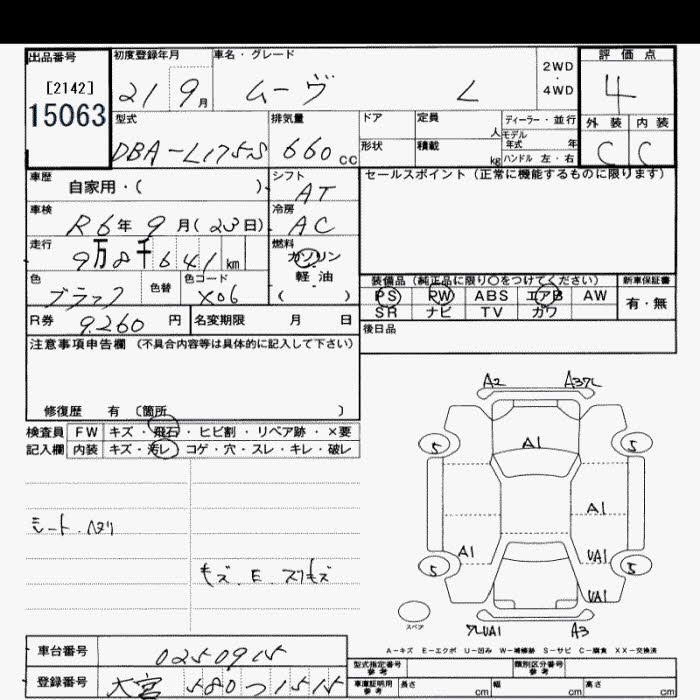 出品番号 初度登録年月 車名・グレード 評価点
[2142] 21 9月 ムーヴ L 2WD・4WD 4
15063
型式 排気量 ドア 定員 人 ディーラー・並行 外装 内装
DBA-L175S 660cc 形状 積載 kg モデル年式 年 C C
ハンドル 左・右
車歴 自家用・( ) シフト AT セールスポイント(正常に機能するものに限ります)
車検 R6年9月(23日) 冷房 AC
走行 9万8千641km 燃料 ガソリン
軽油
( )
色 ブラック 色替 色コード X06
装備品(純正品に限り○をつけてください) 新車保証書
PS PW ABS エアB AW 有・無
SR ナビ TV カワ
R券 9,260円 名変期限 月 日 後日品
注意事項申告欄(不具合内容等は具体的に記入して下さい)
修復歴 有 〔箇所 〕
検査員 FW キズ・飛石・ヒビ割・リペア跡・×要
記入欄 内装 キズ・汚レ・コゲ・穴・スレ・キレ・破レ
A2
A1
5 5
A1
A1 UA1
5 5
UA1
UA1 A3
スペア
A-キズ E-エクボ U-凹み W-補修跡 S-サビ C-腐食 XX-交換済
車台番号 0250915
登録番号 大宮 580 つ 1515
型式指定番号 参考 類別区分番号 参考
車庫証明用 参考 長さ cm 幅 cm 高さ cm